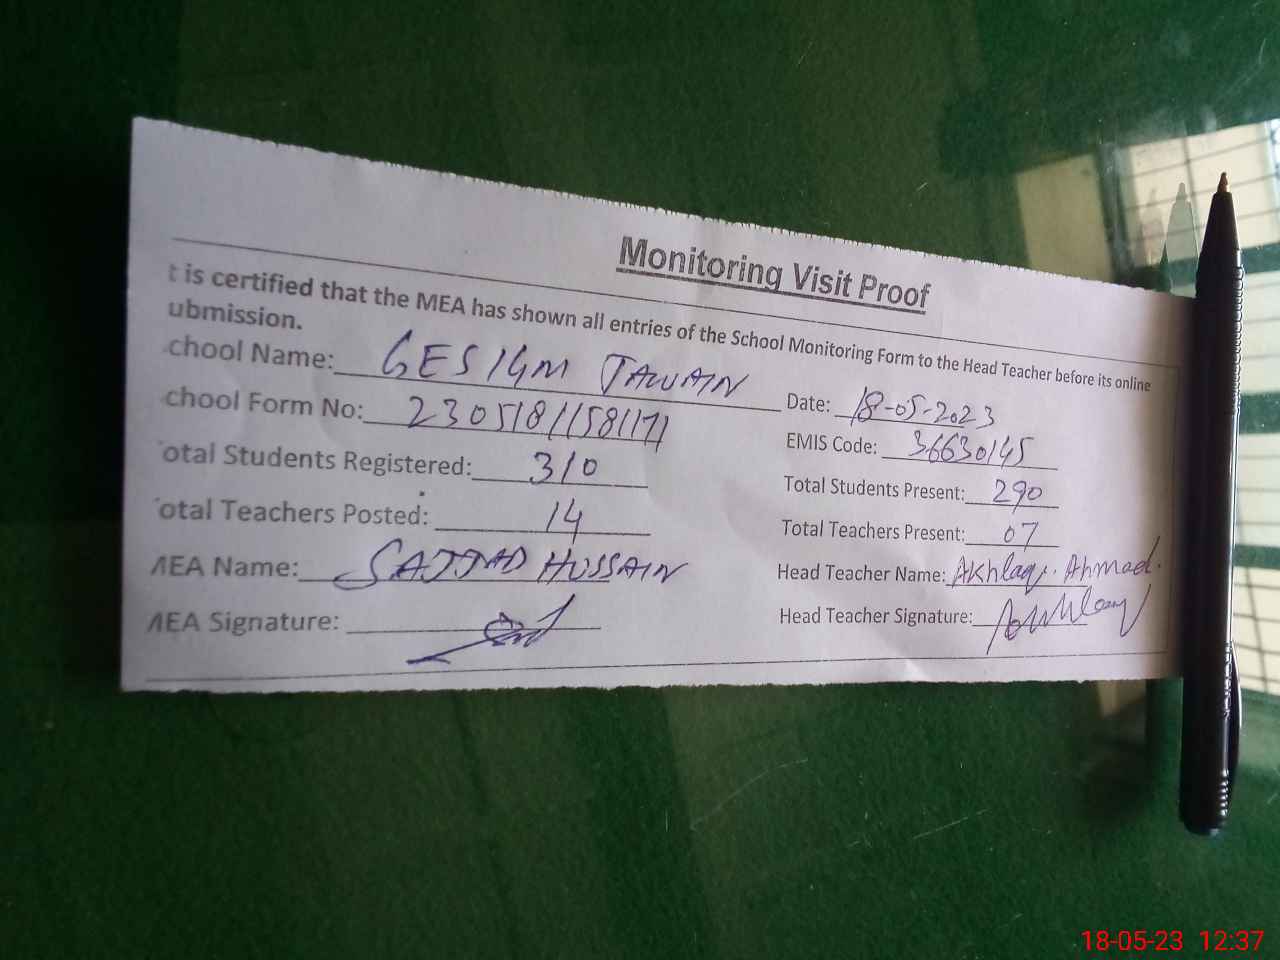 Monitoring Visit Proof
t is certified that the MEA has shown all entries of the School Monitoring Form to the Head Teacher before its online
ubmission.
chool Name: GES 19M Date: 18-05-2023
chool Form No: EMIS Code: 36630145
otal Students Registered: 310 Total Students Present: 290
otal Teachers Posted: 14 Total Teachers Present: 07
MEA Name: SAJJAD HUSSAIN Head Teacher Name: Akhlaq. Ahmad.
MEA Signature: Head Teacher Signature:
18-05-23 12:37